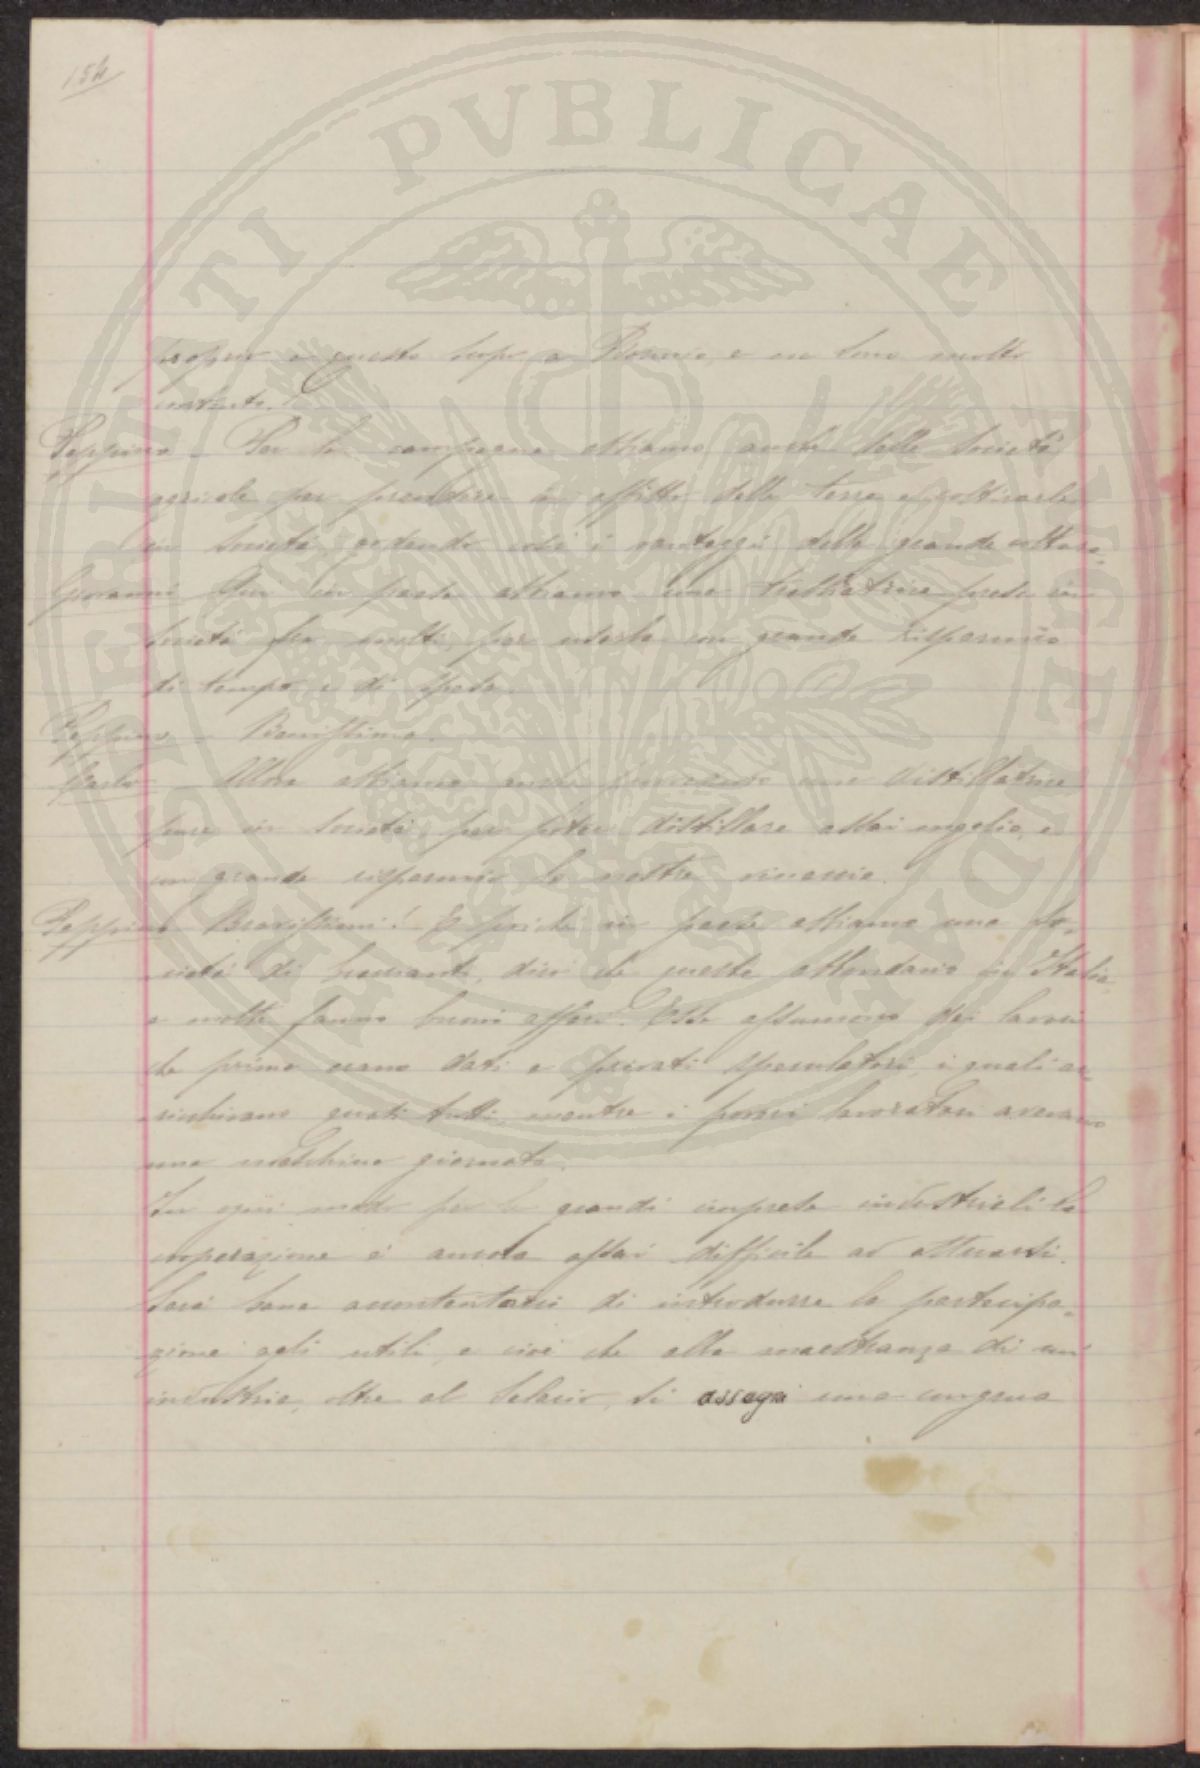 154
proprio a questo scopo a Bormio, e ne sono molto
contento.
Peppino - Per la campagna abbiamo anche delle Società
agricole per prendere in affitto delle terre e coltivarle
in società, godendo così i vantaggi della grande coltura.
Giovanni Qui in paese abbiamo una trebbiatrice presa in
società fra molti, per usarla con grande risparmio
di tempo e di spesa.
Peppino - Benissimo.
Carlo - Allora abbiamo anche una distillatrice
pure in società, per poter distillare assai meglio, e
con grande risparmio le nostre vinacce.
Peppino Bravissimi! E poichè in paese abbiamo una So-
cietà di braccianti, dirò che queste abbondano in Italia,
e molte fanno buoni affari. Esse assumono dei lavori
che prima erano dati a privati speculatori, i quali ar-
ricchivano quasi tutti, mentre i poveri lavoratori avevano
una meschina giornata.
In ogni modo per le grandi imprese industriali la
cooperazione è ancora assai difficile ad attuarsi.
Sarà bene accontentarsi di introdurre la partecipa-
zione agli utili, e cioè che alla maestranza di un'
industria, oltre al salario, si assegni una congrua
PVBLICAE